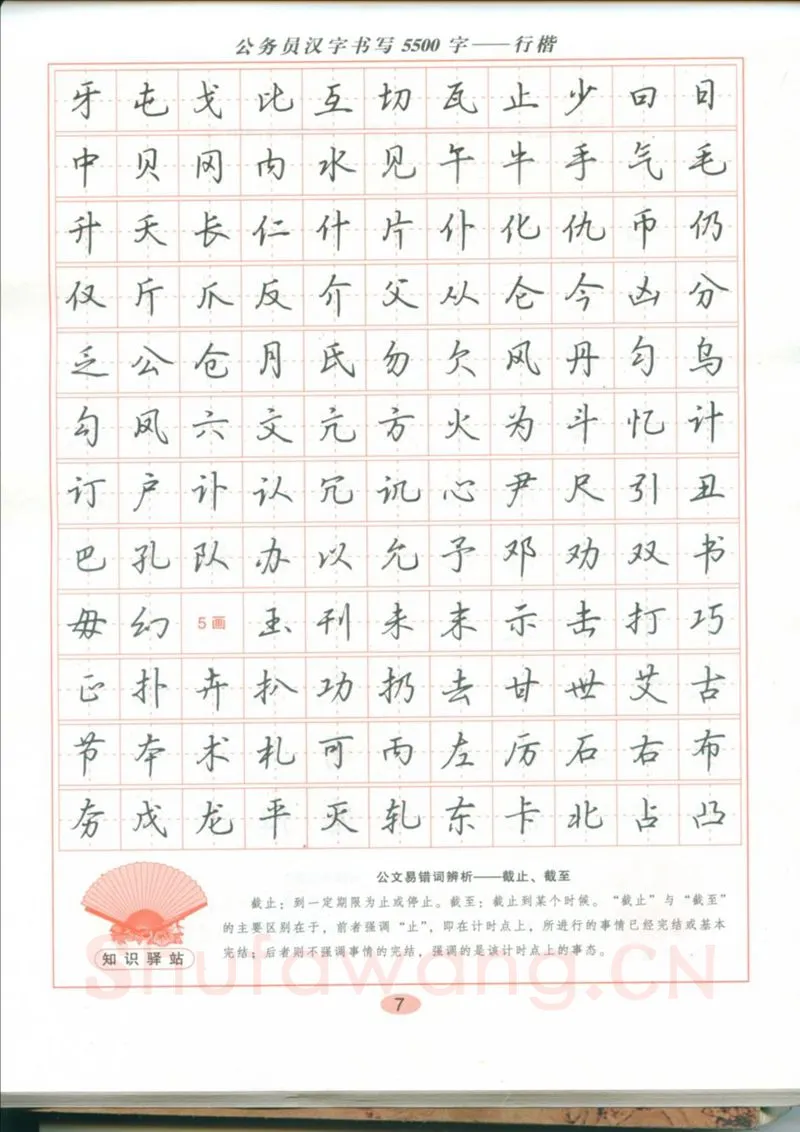 公务员汉字书写5500字——行楷
牙屯戈比互切瓦止少曰日
中贝冈内水见午牛手气毛
升夭长仁什片仆化仇币仍
仅斤爪反介父从仑今凶分
乏公仓月氏勿欠风丹匀乌
勾凤六文亢方火为斗忆计
订户讣认冗讥心尹尺引丑
巴孔队办以允予邓劝双书
毋幻5画玉刊未末示击打巧
正扑卉扒功扔去甘世艾古
节本术札可丙左厉石右布
夯戊龙平灭轧东卡北占凸
公文易错词辨析——截止、截至
截止：到一定期限为止或停止。截至：截止到某个时候。“截止”与“截至”
的主要区别在于，前者强调“止”，即在计时点上，所进行的事情已经完结或基本
完结；后者则不强调事情的完结，强调的是该计时点上的事态。
知识驿站
Shufawang.CN
7